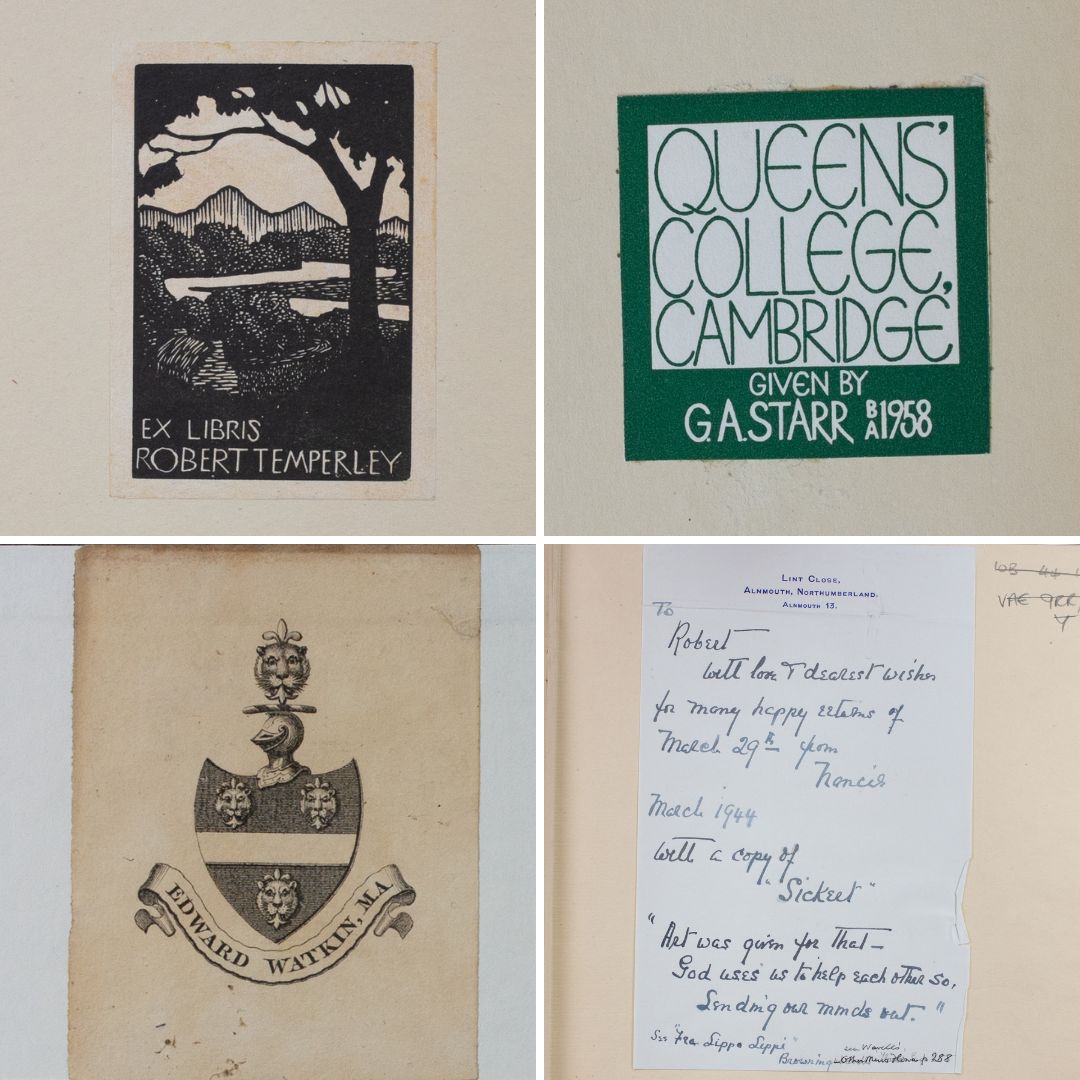 EX LIBRIS
ROBERT TEMPERLEY
QUEENS'
COLLEGE,
CAMBRIDGE
GIVEN BY
G.A.STARR BA 1958
EDWARD WATKIN, MA
LINT CLOSE,
ALNMOUTH, NORTHUMBERLAND.
ALNMOUTH 13.
To
Robert
with love & dearest wishes
for many happy returns of
March 29th from
March 1944
with a copy of
"Sickert"
"Art was given for that—
God uses us to help each other so,
Lending our minds out."
See "Fra Lippo Lippi"
Browning
see Wavell's
p 288